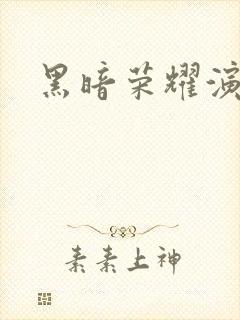 黑暗荣耀演
素素上神